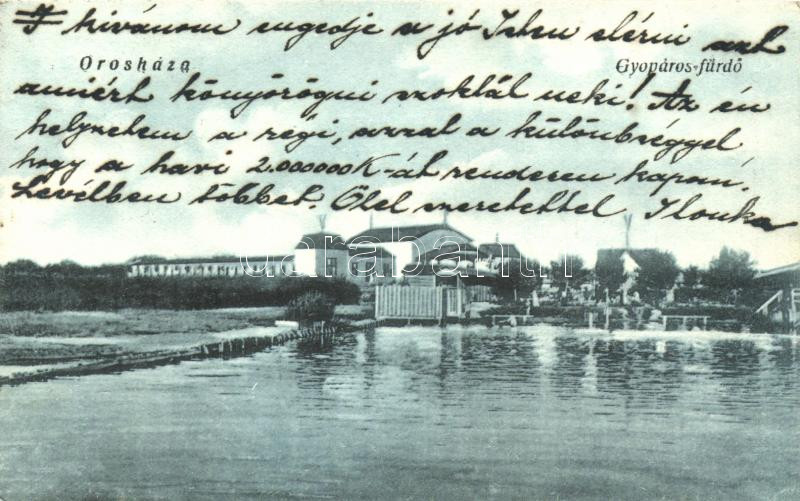 kivánom engedje a jó Isten elérni azt
Orosháza
Gyopáros-fürdő
amiért könyörögni szoktál neki! Az én
helyzetem a régi, azzal a különbséggel
hogy a havi 2.000000K-át rendesen kapom.
Levélben többet. Ölel szeretettel Ilonka
darabanth.com